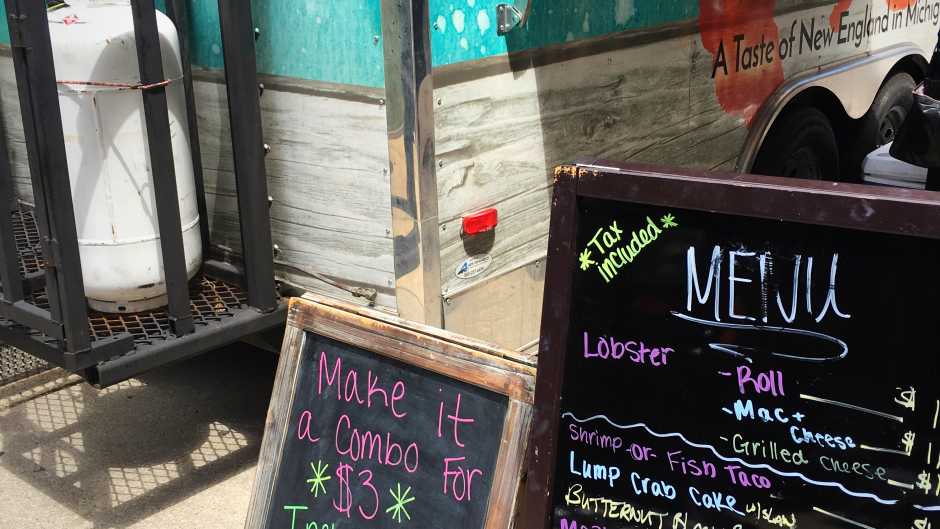 A Taste of New England in Michi
*Tax included*
MENU
Lobster
- Roll $
- Mac + Cheese $
- Grilled cheese $
Shrimp or Fish Taco
Lump Crab Cake w/slaw $
BUTTERNUT
Make it
a Combo
For
*$3*